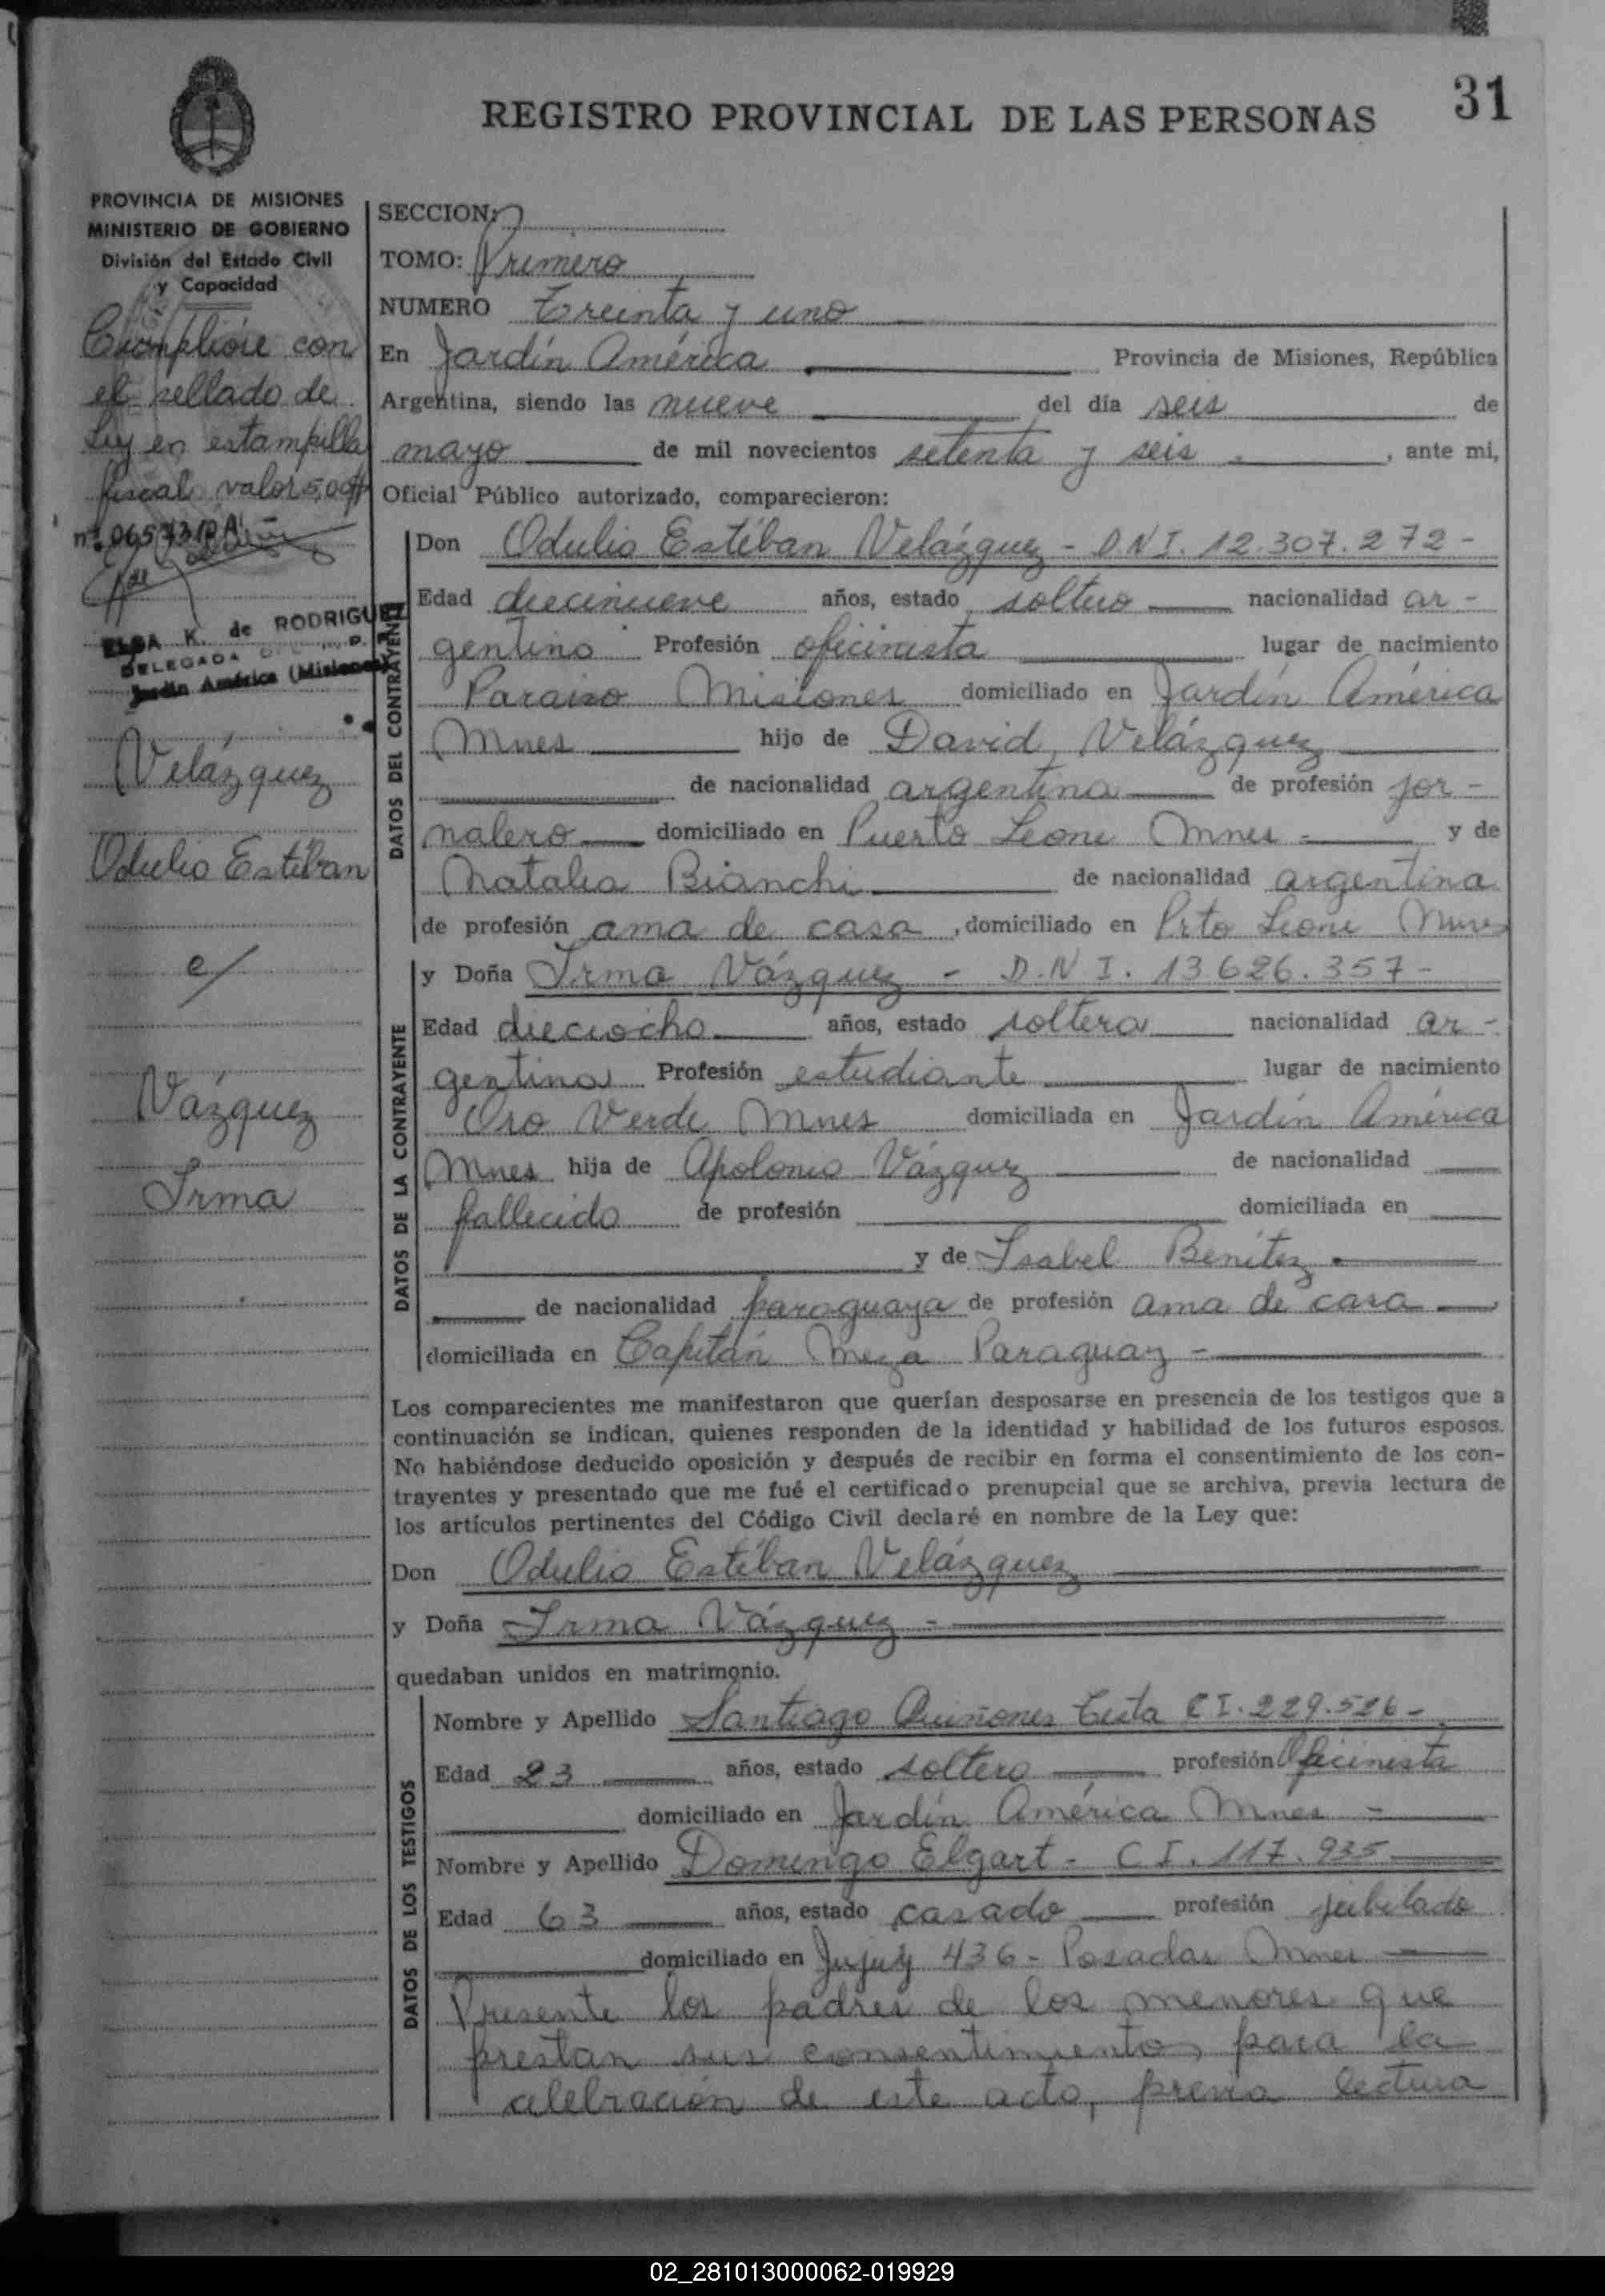 31
REGISTRO PROVINCIAL DE LAS PERSONAS
PROVINCIA DE MISIONES
MINISTERIO DE GOBIERNO
División del Estado Civil
y Capacidad
Cumplióse con
el sellado de
Ley en estampilla
fiscal valor 5,00$
nº 0657310 A
ELSA K. de RODRIGUEZ
DELEGADA
Jardín América (Misiones)
Velázquez
Odulio Estéban
c/
Vázquez
Irma
SECCION:
TOMO: Primero
NUMERO Treinta y uno
En Jardín América Provincia de Misiones, República
Argentina, siendo las nueve del día seis de
mayo de mil novecientos setenta y seis, ante mi,
Oficial Público autorizado, comparecieron:
DATOS DEL CONTRAYENTE
Don Odulio Estéban Velázquez - D.N.I. 12.307.272 -
Edad diecinueve años, estado soltero nacionalidad ar-
gentino Profesión oficinista lugar de nacimiento
Paraiso Misiones domiciliado en Jardín América
Mnes hijo de David Velázquez
de nacionalidad argentina de profesión jor-
nalero domiciliado en Puerto Leoni Mnes - y de
Natalia Bianchi de nacionalidad argentina
de profesión ama de casa, domiciliado en Pto Leoni Mnes
DATOS DE LA CONTRAYENTE
y Doña Irma Vázquez - D.N.I. 13.626.357 -
Edad dieciocho años, estado soltera nacionalidad ar-
gentina Profesión estudiante lugar de nacimiento
Oro Verde Mnes domiciliada en Jardín América
Mnes hija de Apolonio Vázquez de nacionalidad
fallecido de profesión domiciliada en
y de Isabel Benítez
de nacionalidad paraguaya de profesión ama de casa
domiciliada en Capitán Meza Paraguay -
Los comparecientes me manifestaron que querían desposarse en presencia de los testigos que a
continuación se indican, quienes responden de la identidad y habilidad de los futuros esposos.
No habiéndose deducido oposición y después de recibir en forma el consentimiento de los con-
trayentes y presentado que me fué el certificado prenupcial que se archiva, previa lectura de
los artículos pertinentes del Código Civil declaré en nombre de la Ley que:
Don Odulio Estéban Velázquez
y Doña Irma Vázquez -
quedaban unidos en matrimonio.
DATOS DE LOS TESTIGOS
Nombre y Apellido Santiago Quiñones C.I. 229.526 -
Edad 23 años, estado soltero profesión Oficinista
domiciliado en Jardín América Mnes -
Nombre y Apellido Domingo Elgart - C.I. 117.935
Edad 63 años, estado casado profesión jubilado
domiciliado en Jujuy 436 - Posadas Mnes
Presente los padres de los menores que
prestan sus consentimientos para la
celebración de este acto, previa lectura
02_281013000062-019929